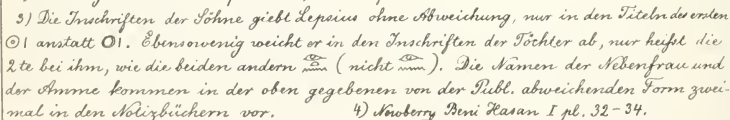 3) Die Inschriften der Söhne giebt Lepsius ohne Abweichung, nur in den Titeln des ersten
anstatt. Ebensowenig weicht er in den Inschriften der Töchter ab, nur heißt die
2te bei ihm, wie die beiden andern (nicht ). Die Namen der Nebenfrau und
der Amme kommen in der oben gegebenen von der Publ. abweichenden Form zwei-
mal in den Notizbüchern vor. 4) Newberry Beni Hasan I pl. 32-34.